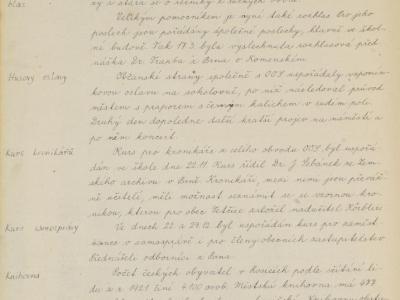 hlas
ny a stará se o
Velikým pomocníkem je nyní také rozhlas. Pro jeho
poslech jsou pořádány společné poslechy, hlavně ve škol-
ní budově. Tak 17.3. byla vyslechnuta rozhlasová před-
náška Dr. Vranka z Brna: o Komenském
Husovy oslavy
Občanské strany společně s OOS uspořádaly vzpomín-
kovou oslavu na sokolovně, po níž následoval průvod
městem s praporem a černým kalichem v rudém poli.
Druhý den dopoledne další kratší projev na náměstí a
po něm koncert.
Kurs kronikářů
Kurs pro kronikáře z celého obvodu OOS byl uspořá-
dán ve škole dne 22.11. Kurs řídil Dr. J. Šebánek ze Zem-
ského archivu v Brně. Kronikáři, mezi nimi jsou převáž-
ně učitelé, měli možnost seznámit se se vzornou kro-
nikou, kterou pro obec založil nadučitel
Kurs samosprávy
Ve dnech 22. a 29.12. byl uspořádán kurs pro zaměst
nance v samosprávě i pro členy obecních zastupitelstev
Přednášeli odborníci z Brna.
Knihovna
Počet českých obyvatel v podle sčítání li-
du z r. 1921 činí osob. Městská knihovna má 499